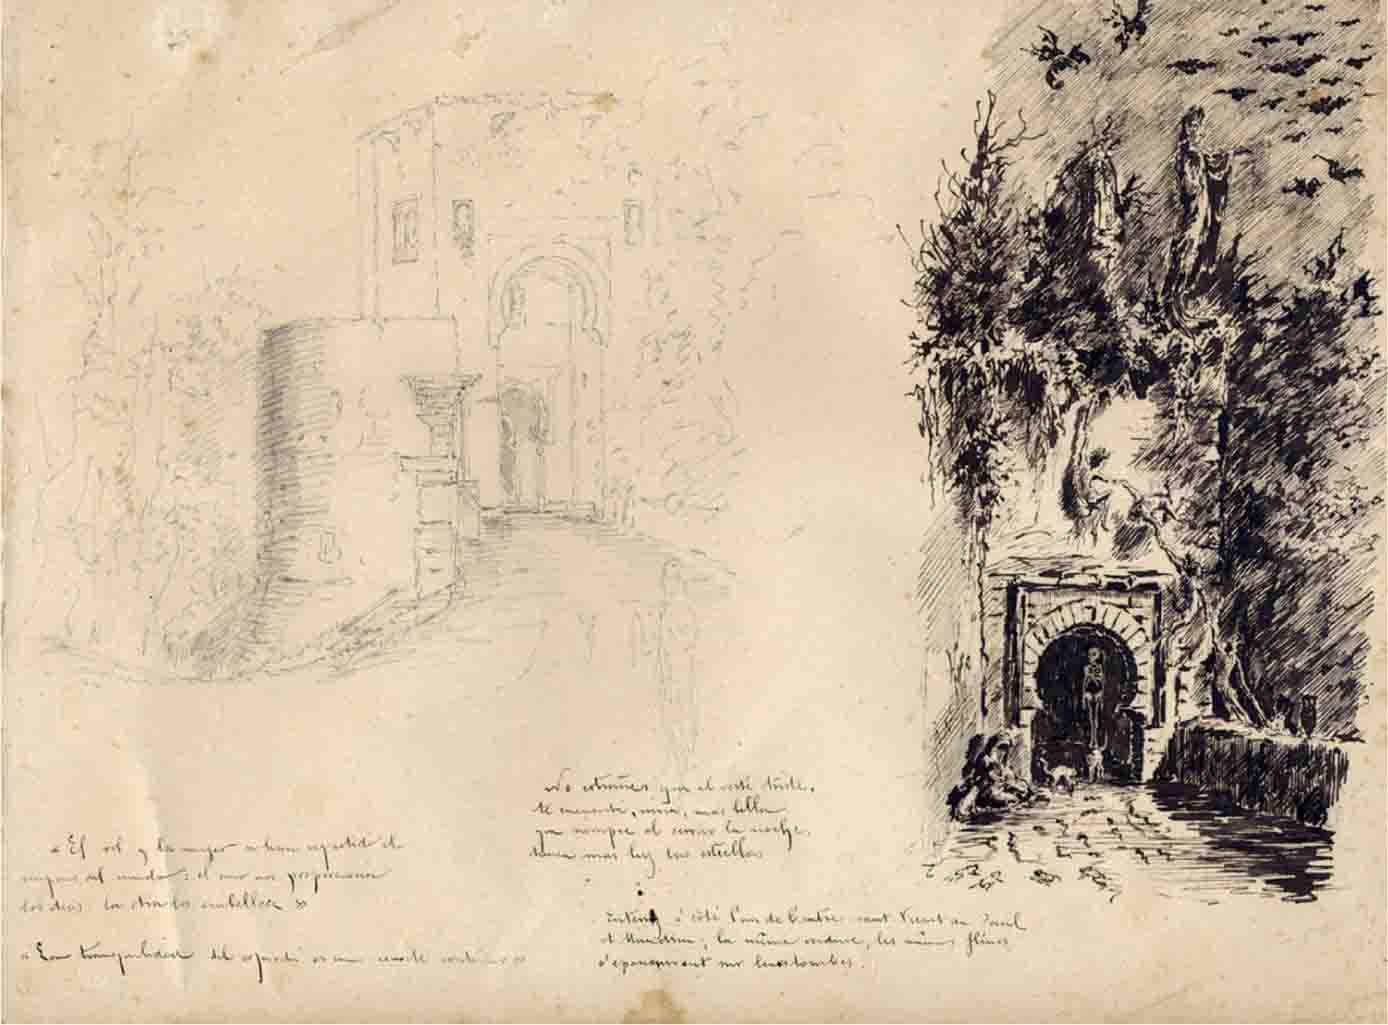 « El sol y la mujer se han repartido el
imperio del mundo: el uno nos proporciona
los dias. la otra los embellece »
« La tranquilidad del es un continuo »
No estrañes que el esté triste,
te encuentre, niña, mas bella
que siempre al cerrar la noche,
tiene mas luz las estrellas
à côté l'un de l'autre sant Vicent de Paul
et Mandrin, la même verdure, les mêmes fleurs
s'epanouiront sur leurs tombes.